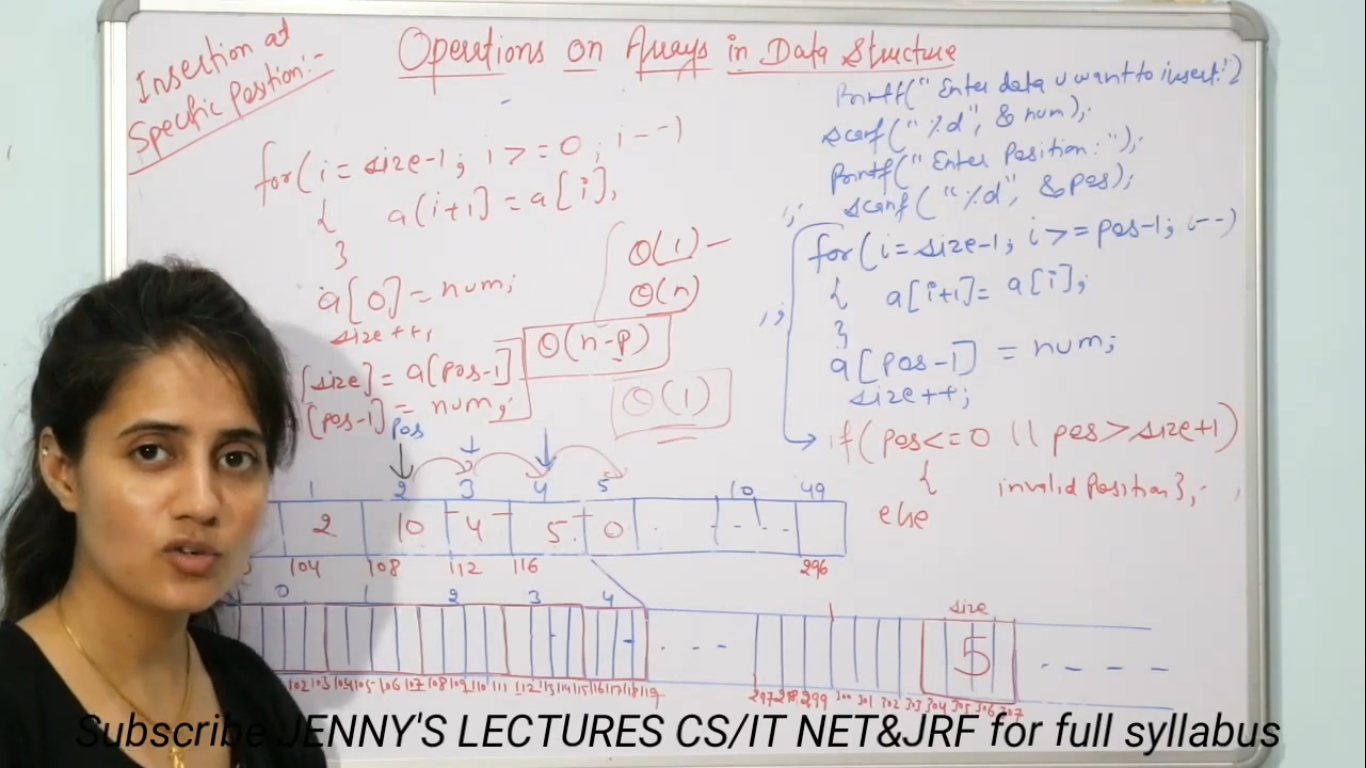 Insertion at
Specific Position:-
Operations on Arrays in Data Structure
for(i=size-1; i>=0; i--)
{ a(i+1]=a[i];
}
a[0]=num;
size++;
[size]=a[pos-1]
[pos-1]=num;
O(1)-
O(n)
O(n-p)
O(1)
Printf("Enter data u want to insert:")
scanf("%d", &num);
Printf("Enter Position:");
scanf("%d", &pos);
for(i=size-1; i>=pos-1; i--)
{ a[i+1]=a[i];
}
a[pos-1]=num;
size++;
if(pos<=0 || pos>size+1)
{ invalid Position};
else
Pos
1 2 3 4 5 10 49
2 10 4 5 0
104 108 112 116 296
0 1 2 3 4
size
5
102 103 104 105 106 107 108 109 110 111 112 113 114 115 116 117 118 119
297 298 299 300 301 302 303 304 305 306 307
Subscribe JENNY'S LECTURES CS/IT NET&JRF for full syllabus